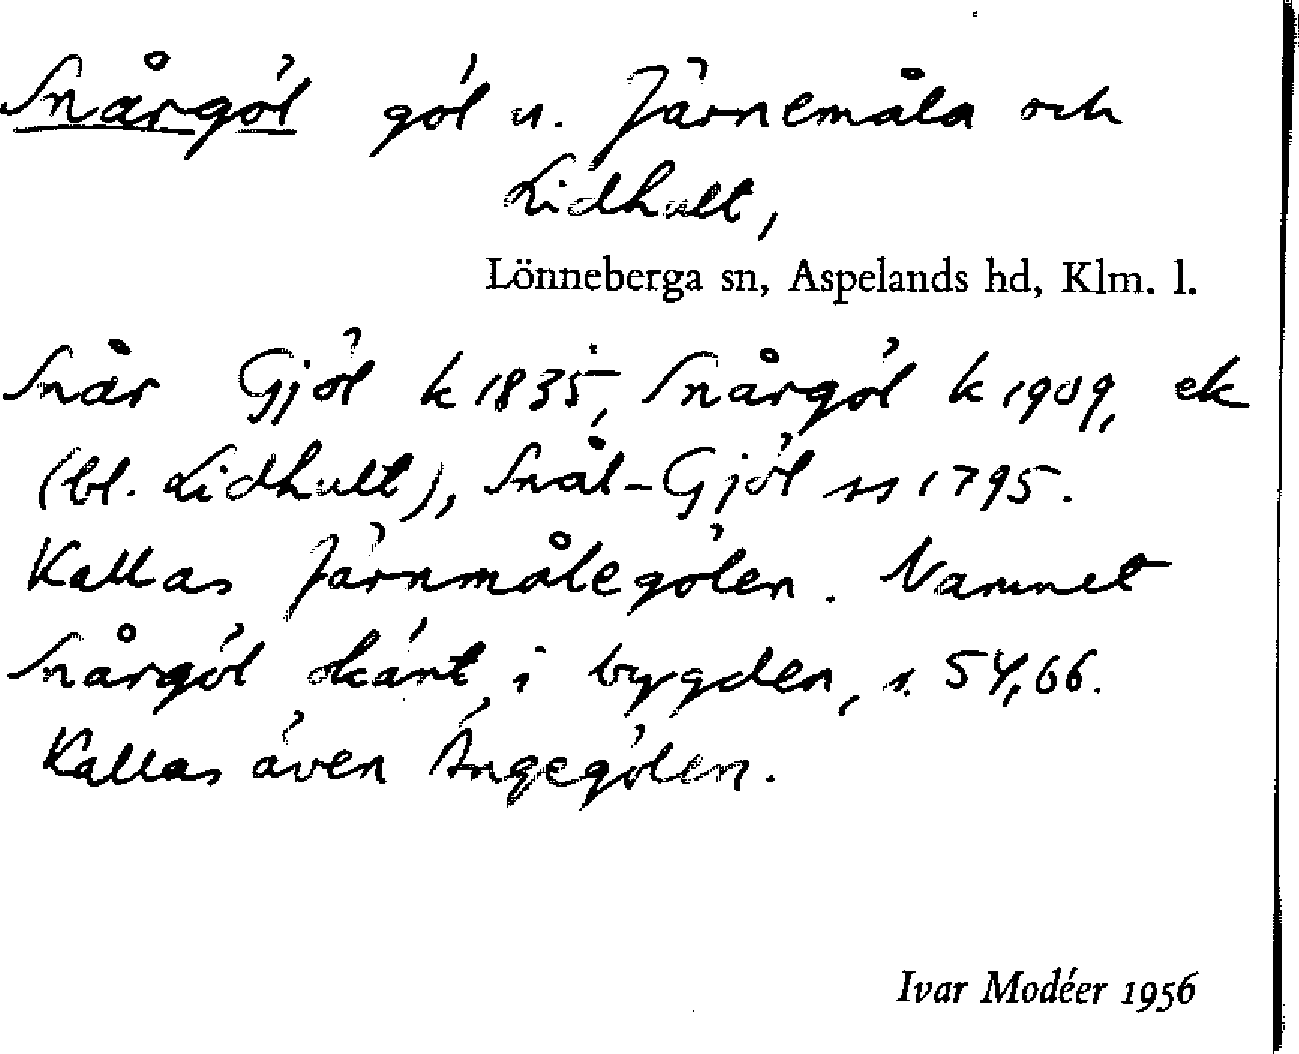 Snårgöl göl u. Järnemåla och
Lidhult,
Lönneberga sn, Aspelands hd, Klm. l.
Snår Gjöl k 1835, Snårgöl k 1909, ek
(bl. Lidhult), Snål-Gjöl ss 1795.
Kallas Järnmålegölen. Namnet
Snårgöl okänt i bygden, s. 54, 66.
Kallas även Ängegölen.
Ivar Modéer 1956